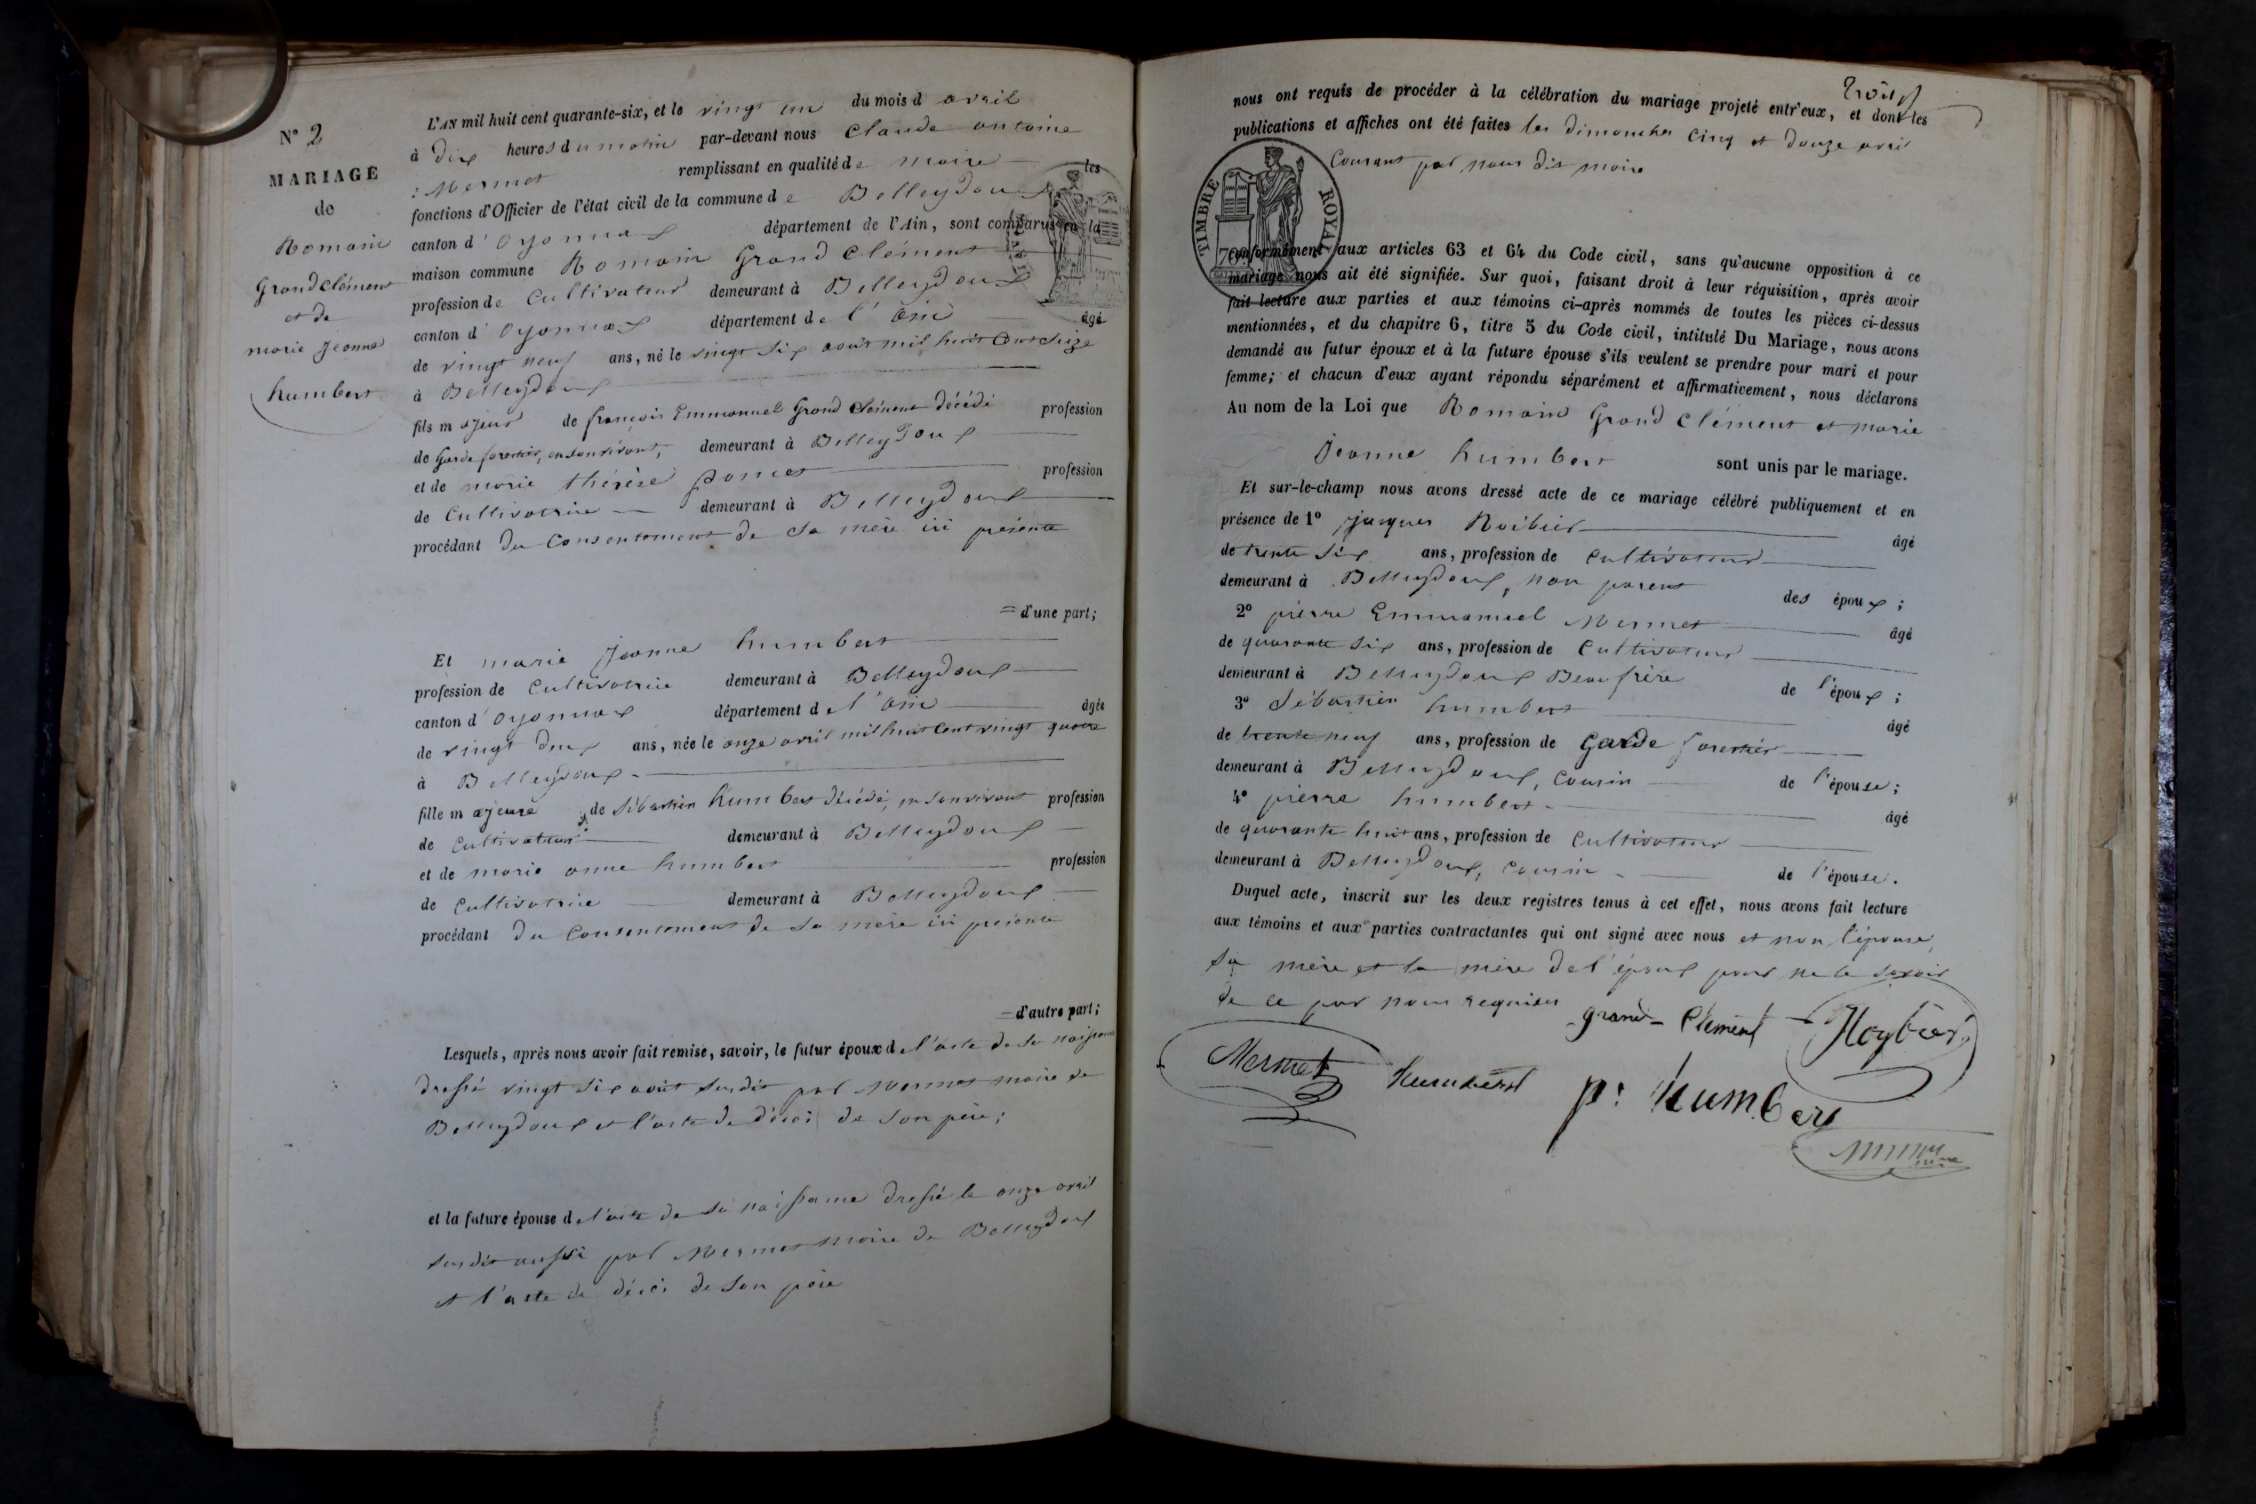 N° 2
MARIAGE
de
Romain
Grand Clément
et de
marie Jeanne
humbert
L'AN mil huit cent quarante-six, et le vingt un du mois d avril
à dix heures du matin par-devant nous Claude antoine
Mermet remplissant en qualité de maire les
fonctions d'Officier de l'état civil de la commune de Belleydoux
canton d'Oyonnax département de l'Ain, sont comparus en la
maison commune Romain Grand Clément
profession de Cultivateur demeurant à Belleydoux
canton d'Oyonnax département de l'ain âgé
de vingt neuf ans, né le vingt six aout mil huit cent seize
à Belleydoux
fils majeur de françois Emmanuel Grand Clément décédé profession
de Garde forestier, en son vivant, demeurant à Belleydoux
et de marie thérèse poncet profession
de Cultivatrice demeurant à Belleydoux
procédant du Consentement de sa mère ici présente
= d'une part;
Et marie Jeanne humbert
profession de Cultivatrice demeurant à Belleydoux
canton d'Oyonnax département de l'ain âgée
de vingt deux ans, née le onze avril mil huit cent vingt quatre
à Belleydoux
fille majeure de Sébastien humbert décédé, en son vivant profession
de Cultivateur demeurant à Belleydoux
et de marie anne humbert profession
de Cultivatrice demeurant à Belleydoux
procédant du Consentement de sa mère ici présente
= d'autre part;
Lesquels, après nous avoir fait remise, savoir, le futur époux de l'acte de sa naissance
dressé vingt six août susdit par Mermet maire de
Belleydoux et l'acte de décès de son père;
et la future épouse de l'acte de sa naissance dressé le onze avril
susdit aussi par Mermet maire de Belleydoux
et l'acte de décès de son père
nous ont requis de procéder à la célébration du mariage projeté entr'eux, et dont les
publications et affiches ont été faites les dimanches cinq et douze avril
Courant par nous dit maire
TIMBRE ROYAL
conformément aux articles 63 et 64 du Code civil, sans qu'aucune opposition à ce
mariage nous ait été signifiée. Sur quoi, faisant droit à leur réquisition, après avoir
fait lecture aux parties et aux témoins ci-après nommés de toutes les pièces ci-dessus
mentionnées, et du chapitre 6, titre 5 du Code civil, intitulé Du Mariage, nous avons
demandé au futur époux et à la future épouse s'ils veulent se prendre pour mari et pour
femme; et chacun d'eux ayant répondu séparément et affirmativement, nous déclarons
Au nom de la Loi que Romain Grand Clément et marie
Jeanne humbert sont unis par le mariage.
Et sur-le-champ nous avons dressé acte de ce mariage célébré publiquement et en
présence de 1° Jacques Roibier âgé
de trente six ans, profession de Cultivateur
demeurant à Belleydoux, non parent des époux;
2° pierre Emmanuel Mermet âgé
de quarante six ans, profession de Cultivateur
demeurant à Belleydoux Beau frère de l'époux;
3° Sébastien humbert âgé
de trente neuf ans, profession de Garde forestier
demeurant à Belleydoux, cousin de l'épouse;
4° pierre humbert âgé
de quarante huit ans, profession de Cultivateur
demeurant à Belleydoux, cousin de l'épouse.
Duquel acte, inscrit sur les deux registres tenus à cet effet, nous avons fait lecture
aux témoins et aux parties contractantes qui ont signé avec nous et non l'épouse,
sa mère et la mère de l'époux pour ne le savoir
de ce par nous requises
Grand-Clément
Roybier
Mermet
humbert
p: humbert